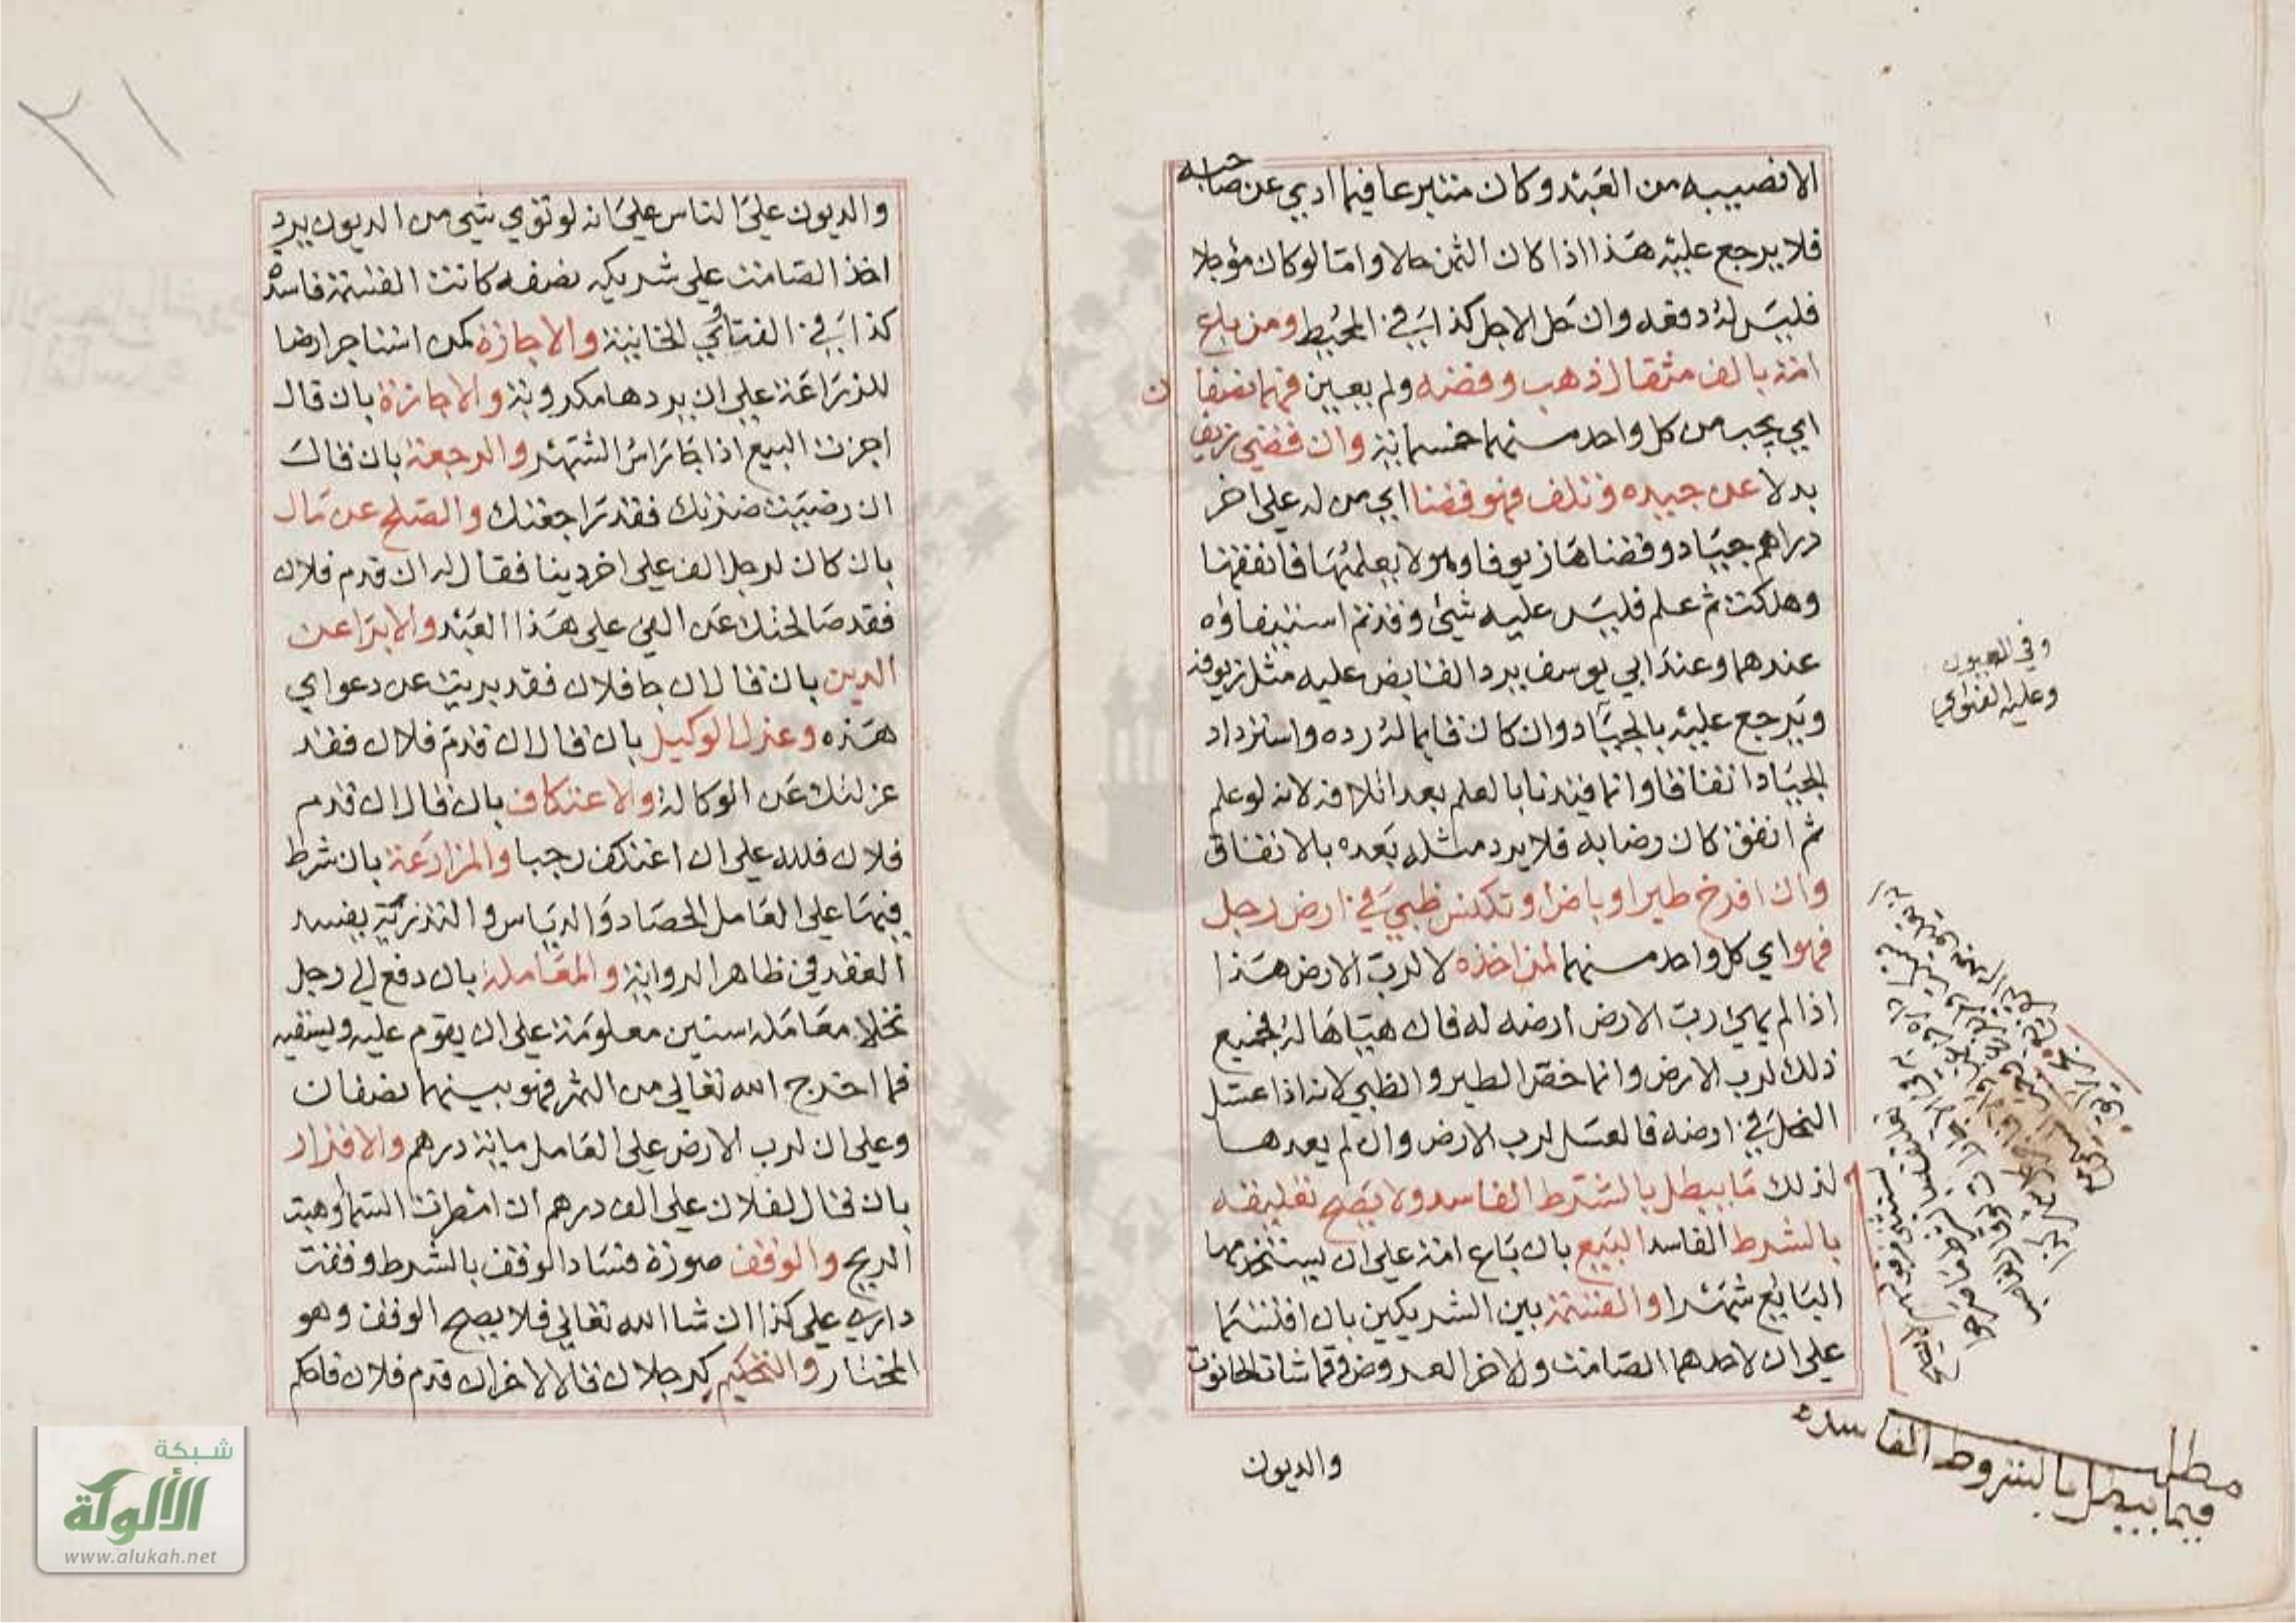 الا نصيبه من العبد وكان متبرعا فيما ادي عن صاحبه
فلا يرجع عليه هذا اذا كان الثمن حالا واما لو كان مؤجلا
فليس له دفعه وان حل الاجل كذا في المحيط ومن باع
امة بالف مثقال ذهب وفضه ولم يعين فهما نصفا
ن
اي يجب من كل واحد منهما خمسمائة وان قضي زيفا
بدلا عن جيده وتلف فهو قضا اي من له علي اخر
دراهم جياد وقضاها زيوفا وهو لا يعلمها فانفقها
وهلكت ثم علم فليس عليه شئ وقد تم استيفاؤه
عندهما وعند ابي يوسف يرد القابض عليه مثل زيوفه
ويرجع عليه بالجياد وان كان قايما له رده واسترداد
الجياد اتفاقا وانما قيدنا بالعلم بعد اتلافه لانه لو علم
ثم انفق كان رضا به فلا يرد مثله بعده بالاتفاق
وان افرخ طير او باض او تكنس ظبي في ارض رجل
فهو اي كل واحد منهما لمن اخذه لا لرب الارض هذا
اذا لم يهي رب الارض ارضه له فان هياها له فجميع
ذلك لرب الارض وانما خص الطير والظبي لانه اذا عسل
النحل في ارضه فالعسل لرب الارض وان لم يعدها
لذلك ما يبطل بالشرط الفاسد ولا يصح تعليقه
بالشرط الفاسد البيع بان باع امة علي ان يستخدمها
البايع شهرا والقسمة بين الشريكين بان اقتسما
علي ان لاحدهما الصامت وللاخر العروض وقماشات الحانوت
والديون
وفي العيون
وعليه الفتوي
مطلب
فيما يبطل بالشروط الفاسده
٢١
والديون علي الناس علي انه لو توي شئ من الديون يرد
اخذ الصامت علي شريكه نصفه كانت القسمة فاسدة
كذا في الفتاوي الخانية والاجارة كمن استاجر ارضا
للزراعة علي ان يردها مكروبة والاجازة بان قال
اجزت البيع اذا جا راس الشهر والرجعة بان قال
ان رضيت ضرتك فقد راجعتك والصلح عن مال
بان كان لرجل الف علي اخر دينا فقال له ان قدم فلان
فقد صالحتك عن الفي علي هذا العبد والابرا عن
الدين بان قال ان جا فلان فقد بريت عن دعواي
هذه وعزل الوكيل بان قال ان قدم فلان فقد
عزلتك عن الوكالة والاعتكاف بان قال ان قدم
فلان فلله علي ان اعتكف رجبا والمزارعة بان شرط
فيها علي العامل الحصاد والدياس والتذرية يفسد
العقد في ظاهر الرواية والمعاملة بان دفع الي رجل
نخلا معاملة سنين معلومة علي ان يقوم عليه ويسقيه
فما اخرج الله تعالي من الثمر فهو بينهما نصفان
وعلي ان لرب الارض علي العامل ماية درهم والاقرار
بان قال لفلان علي الف درهم ان امطرت السما وهبت
الريح والوقف صورة فساد الوقف بالشرط وقفت
داري علي كذا ان شا الله تعالي فلا يصح الوقف وهو
المختار والتحكيم كرجلان قالا لاخر ان قدم فلان فاحكم
شبكة
الألوكة
www.alukah.net